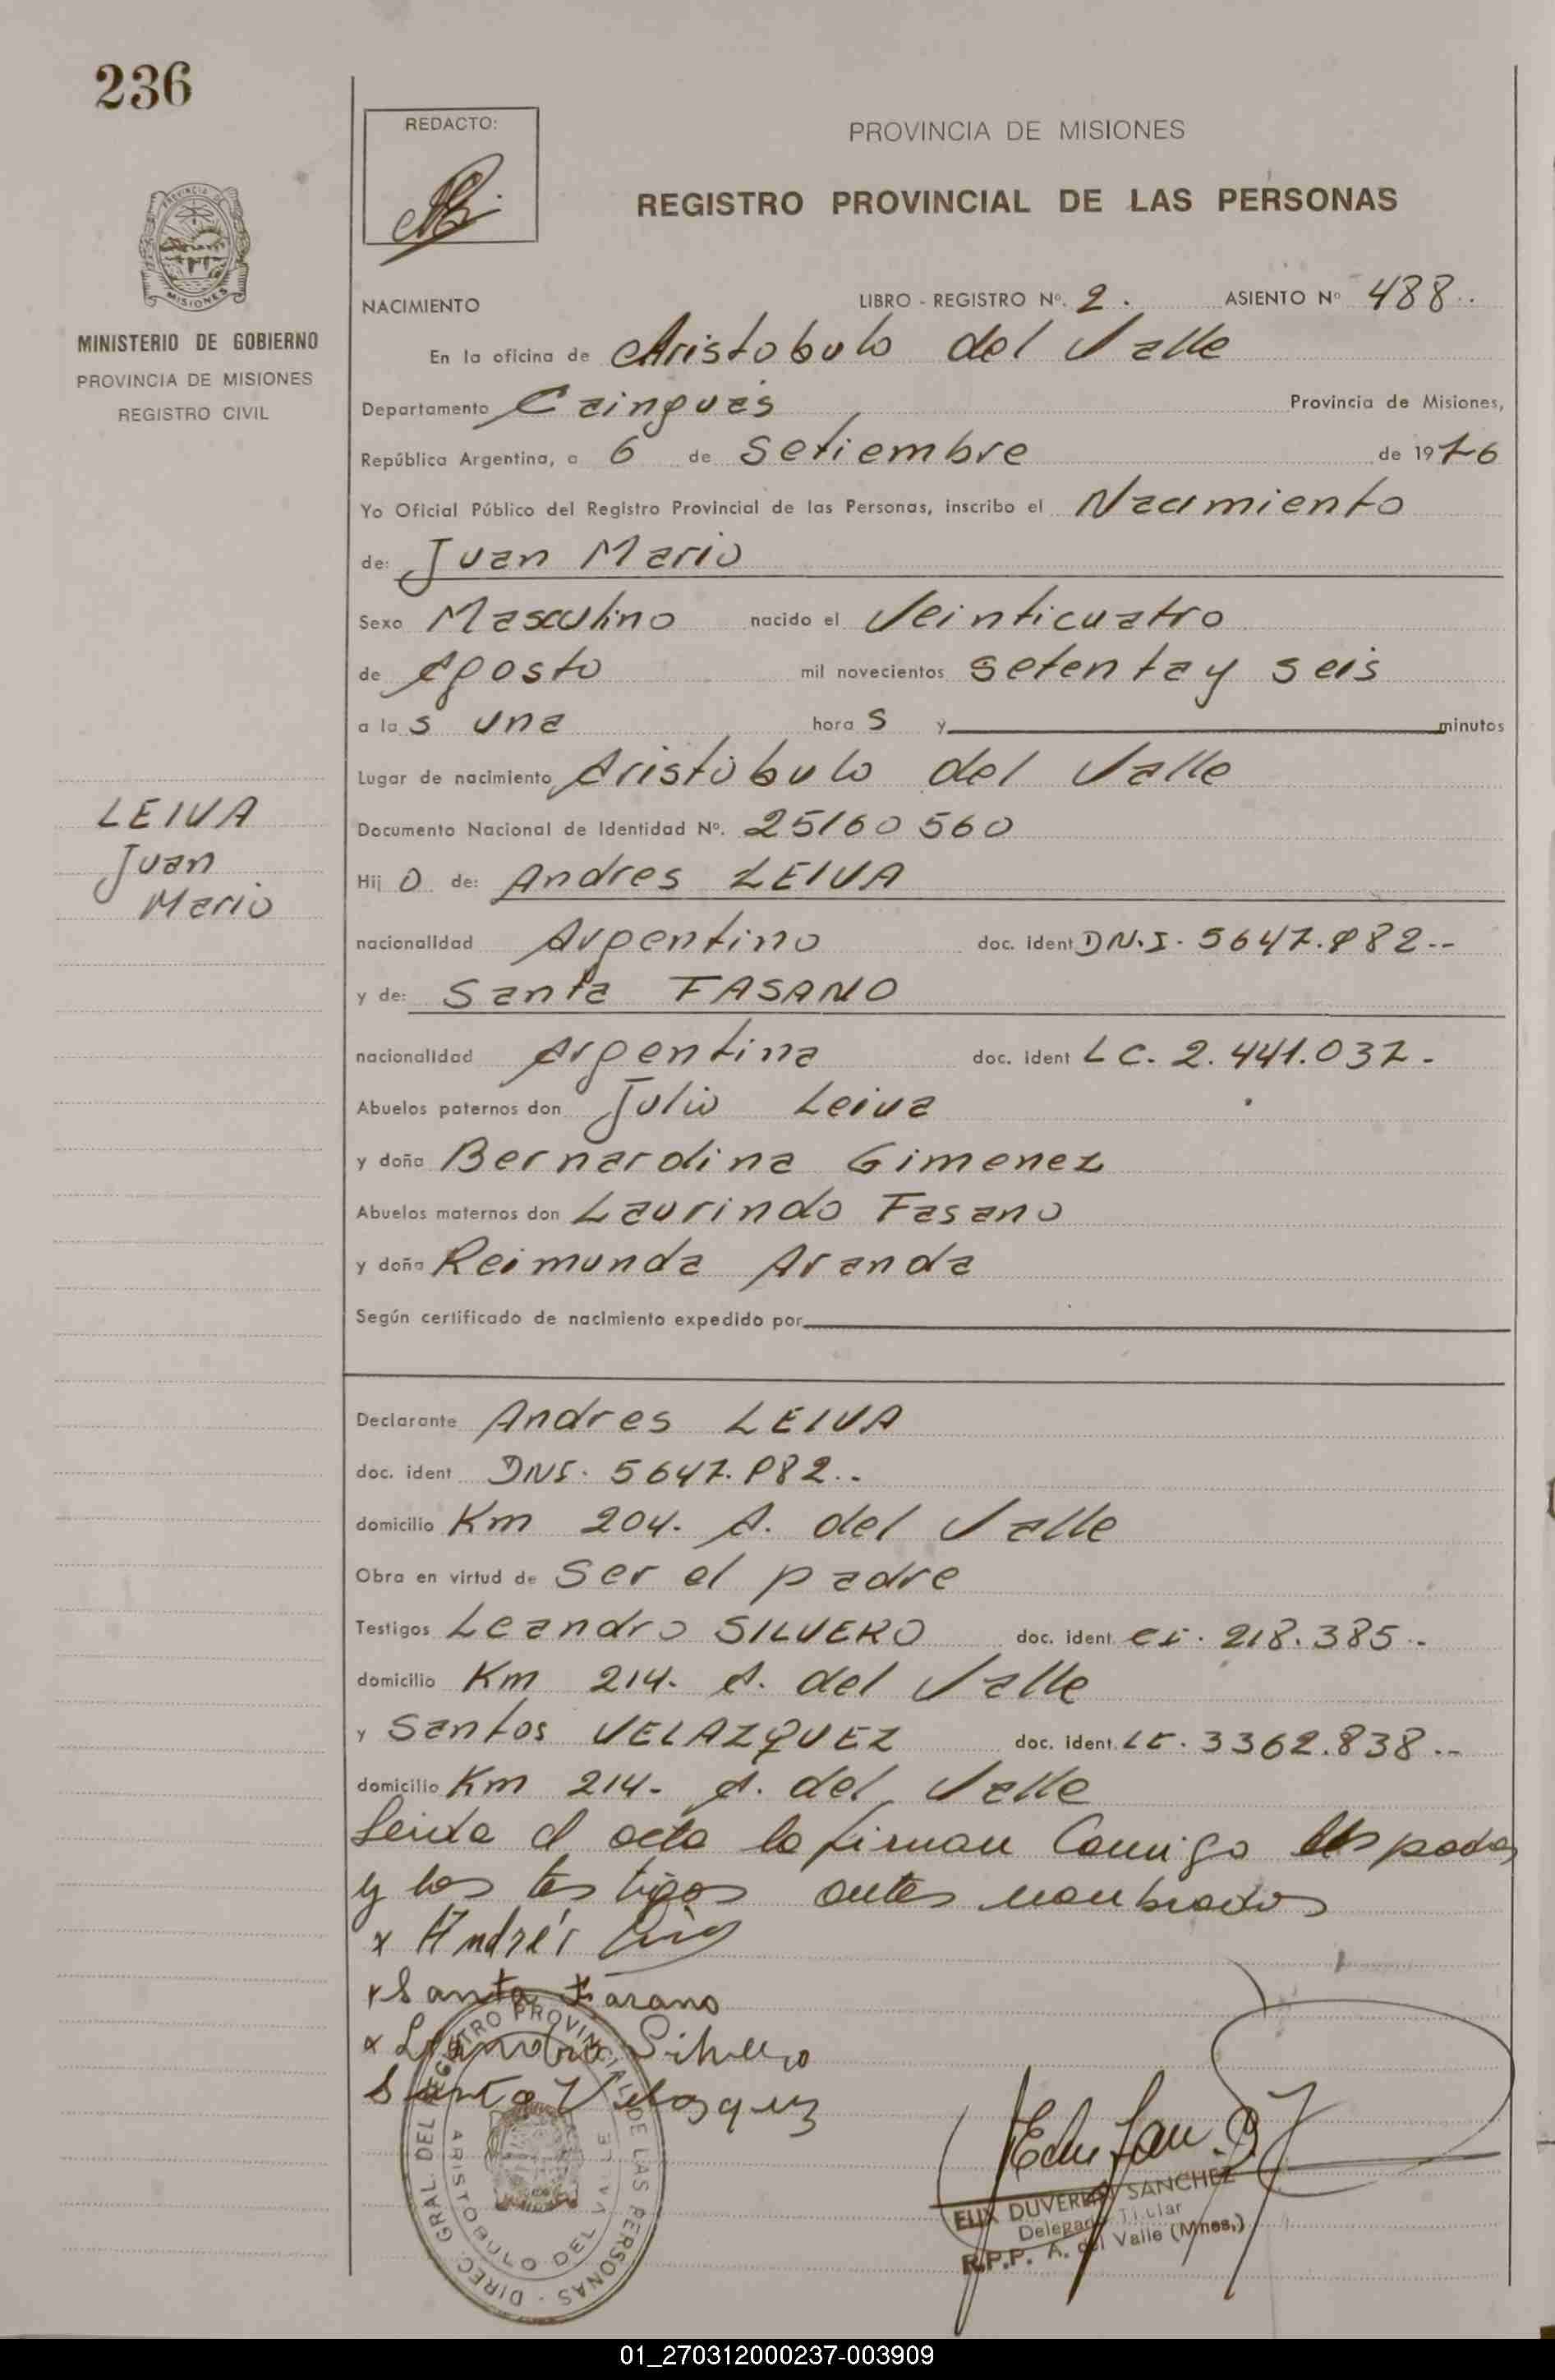 236
REDACTO:
PROVINCIA DE MISIONES
REGISTRO PROVINCIAL DE LAS PERSONAS
PROVINCIA
MISIONES
MINISTERIO DE GOBIERNO
PROVINCIA DE MISIONES
REGISTRO CIVIL
NACIMIENTO LIBRO - REGISTRO Nº. 2. ASIENTO Nº 488..
En la oficina de Aristobulo del Valle
Departamento Cainguas Provincia de Misiones,
República Argentina, a 6 de Setiembre de 1976
Yo Oficial Público del Registro Provincial de las Personas, inscribo el Nacimiento
de: Juan Mario
Sexo Masculino nacido el Veinticuatro
de Agosto mil novecientos setenta y seis
a las una horas y minutos
Lugar de nacimiento Aristobulo del Valle
LEIVA
Juan
Mario
Documento Nacional de Identidad Nº. 25160560
Hijo de: Andres LEIVA
nacionalidad Argentino doc. ident D.N.I. 5647.982--
y de: Santa FASANO
nacionalidad Argentina doc. ident LC. 2.441.037-
Abuelos paternos don Julio Leiva
y doña Bernardina Gimenez
Abuelos maternos don Laurindo Fasano
y doña Reimunda Aranda
Según certificado de nacimiento expedido por
Declarante Andres LEIVA
doc. ident DNI. 5647.982..
domicilio Km 204. A. del Valle
Obra en virtud de Ser el padre
Testigos Leandro SILVERO doc. ident. CI. 218.385..
domicilio Km 214. A. del Valle
y Santos VELAZQUEZ doc. ident. LE. 3362.838..
domicilio Km 214- A. del Valle
Leida el acta la firman Comigo los padres
y los testigos antes nombrados
x Andrés
x Santa Fasano
x Leandro Silvero
Santo Velasquez
DIREC. GRAL. DEL REGISTRO PROVINCIAL DE LAS PERSONAS
ARISTOBULO DEL VALLE
ELIX SANCHEZ
Delegado Titular
R.P.P. A. del Valle (Mnes.)
01_270312000237-003909